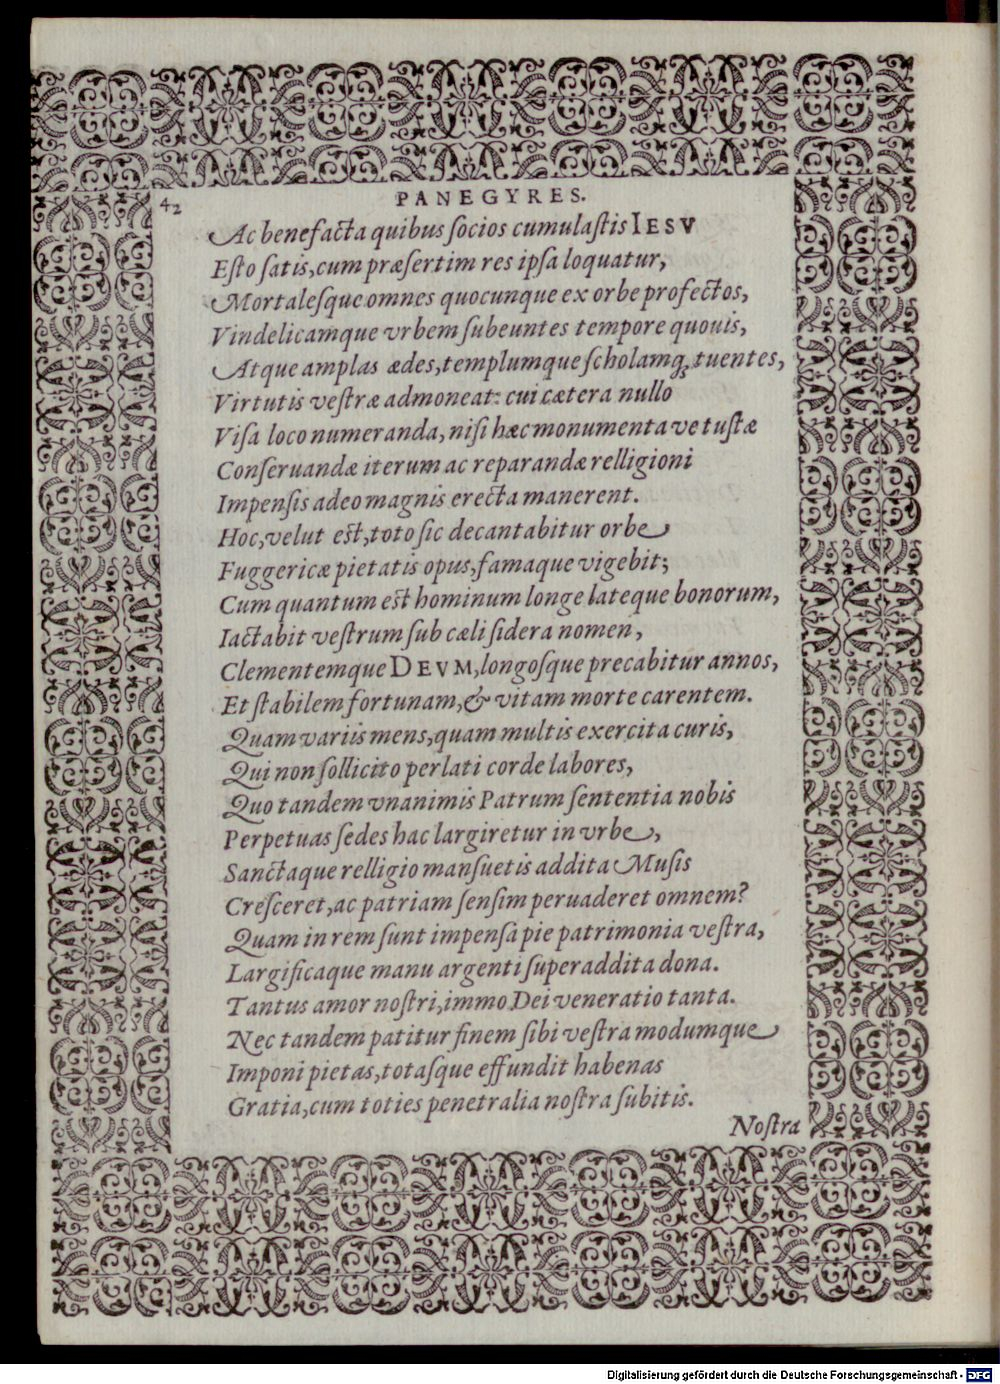 42
PANEGYRES.
Ac benefacta quibus ſocios cumulaſtis IESV
Eſto ſatis, cum præſertim res ipſa loquatur,
Mortaleſque omnes quocunque ex orbe profectos,
Vindelicamque vrbem ſubeuntes tempore quouis,
Atque amplas ædes, templumque ſcholamq́; tuentes,
Virtutis veſtræ admoneat: cui cætera nullo
Viſa loco numeranda, niſi hæc monumenta vetuſtæ
Conſeruandæ iterum ac reparandæ relligioni
Impenſis adeo magnis erecta manerent.
Hoc, velut eſt, toto ſic decantabitur orbe
Fuggericæ pietatis opus, famaque vigebit;
Cum quantum eſt hominum longe lateque bonorum,
Iactabit veſtrum ſub cæli ſidera nomen,
Clementemque DEVM, longoſque precabitur annos,
Et ſtabilem fortunam, & vitam morte carentem.
Quam variis mens, quam multis exercita curis,
Qui non ſollicito perlati corde labores,
Quo tandem vnanimis Patrum ſententia nobis
Perpetuas ſedes hac largiretur in vrbe,
Sanctaque relligio manſuetis addita Muſis
Creſceret, ac patriam ſenſim peruaderet omnem?
Quam in rem ſunt impenſa pie patrimonia veſtra,
Largificaque manu argenti ſuperaddita dona.
Tantus amor noſtri, immo Dei veneratio tanta.
Nec tandem patitur finem ſibi veſtra modumque
Imponi pietas, totaſque effundit habenas
Gratia, cum toties penetralia noſtra ſubitis.
Noſtra
Digitalisierung gefördert durch die Deutsche Forschungsgemeinschaft - DFG